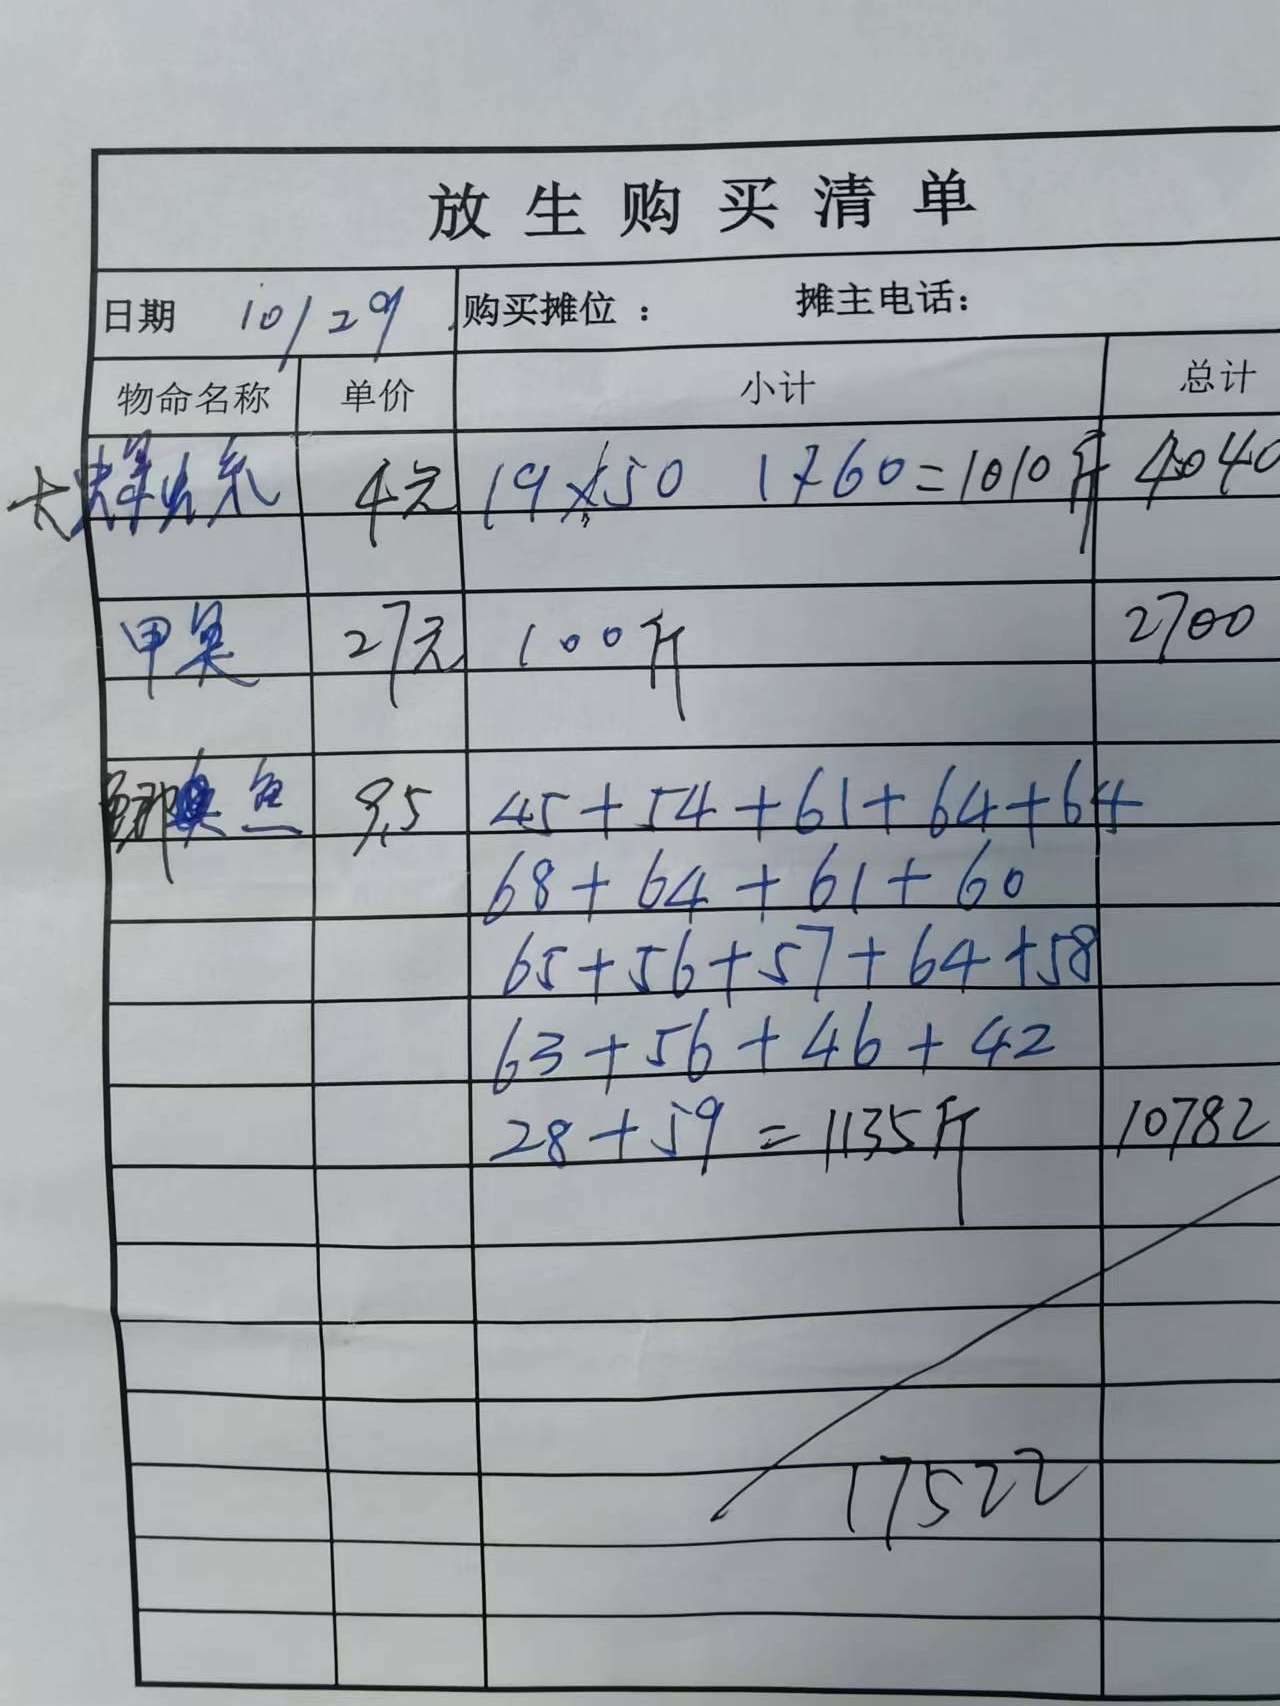 放生购买清单
日期 10/29 购买摊位： 摊主电话：
物命名称 单价 小计 总计
大 4元 19×50 1×60=1010斤 4040
甲 27元 100斤 2700
鱼 9.5 45+54+61+64+64
68+64+61+60
65+56+57+64+58
63+56+46+42
28+59=1135斤 10782
17522